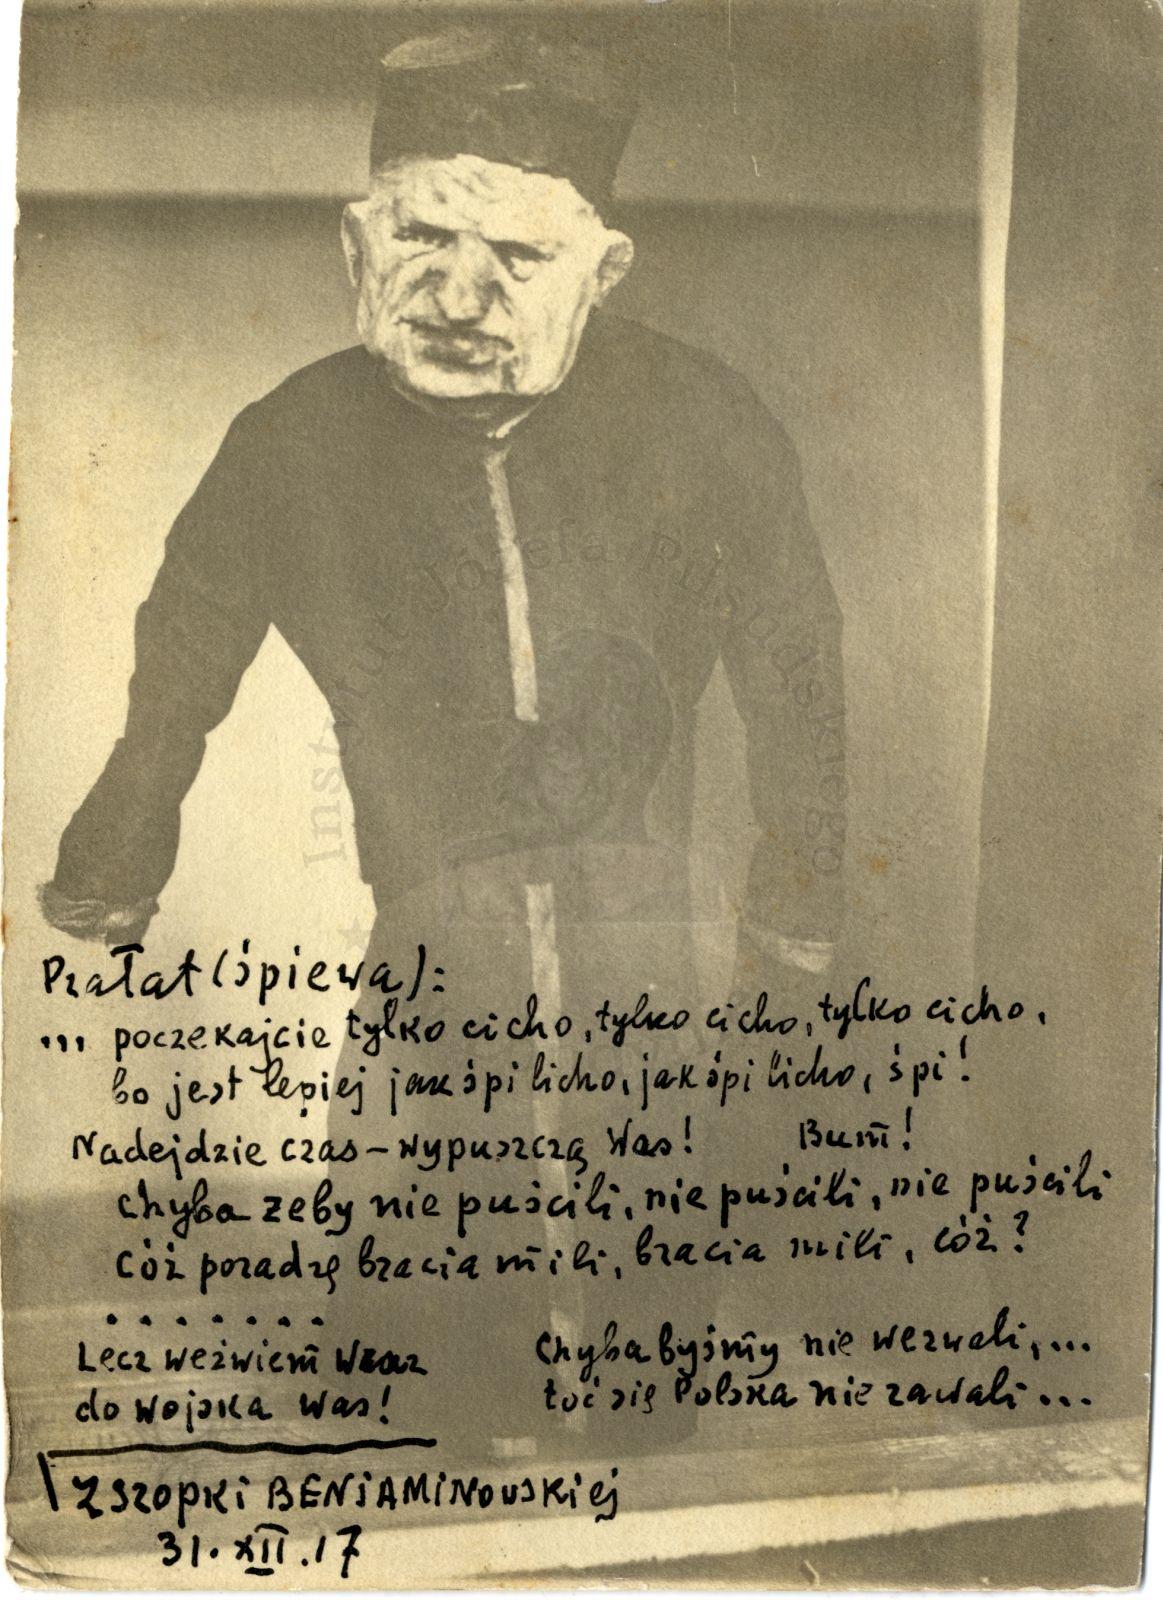 Instytut Józefa Piłsudskiego
Prałat (śpiewa):
... poczekajcie tylko cicho, tylko cicho, tylko cicho,
bo jest lepiej jak śpi licho, jak śpi licho, śpi!
Nadejdzie czas – wypuszczą Was! Bum!
chyba żeby nie puścili, nie puścili, nie puścili
cóż poradzę bracia mili, bracia mili, cóż?
.......
Lecz weźwiem wraz Chyba byśmy nie wezwali,...
do wojska was! toć się Polska nie zawali...
Z SZOPKI BENIAMINOWSKIEJ
31.XII.17